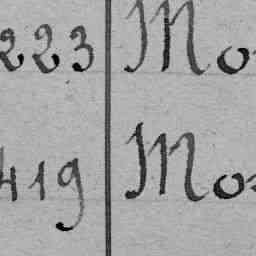 223 Mo
419 Mo